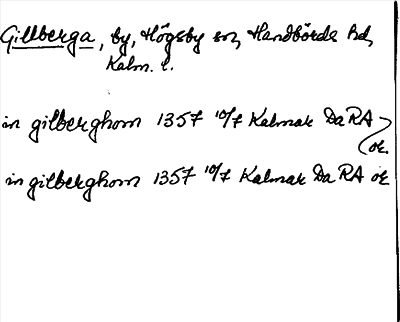 Gillberga, by, Högsby sn, Handbörds hd,
Kalm. l.
in gilberghom 1357 10/7 Kalmar Da RA
or.
in gilberghom 1357 10/7 Kalmar Da RA or